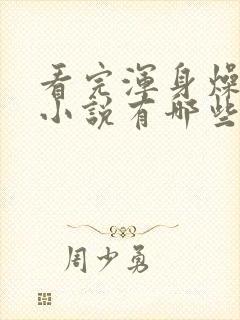 看完渾身燥
小說有哪些
周少勇